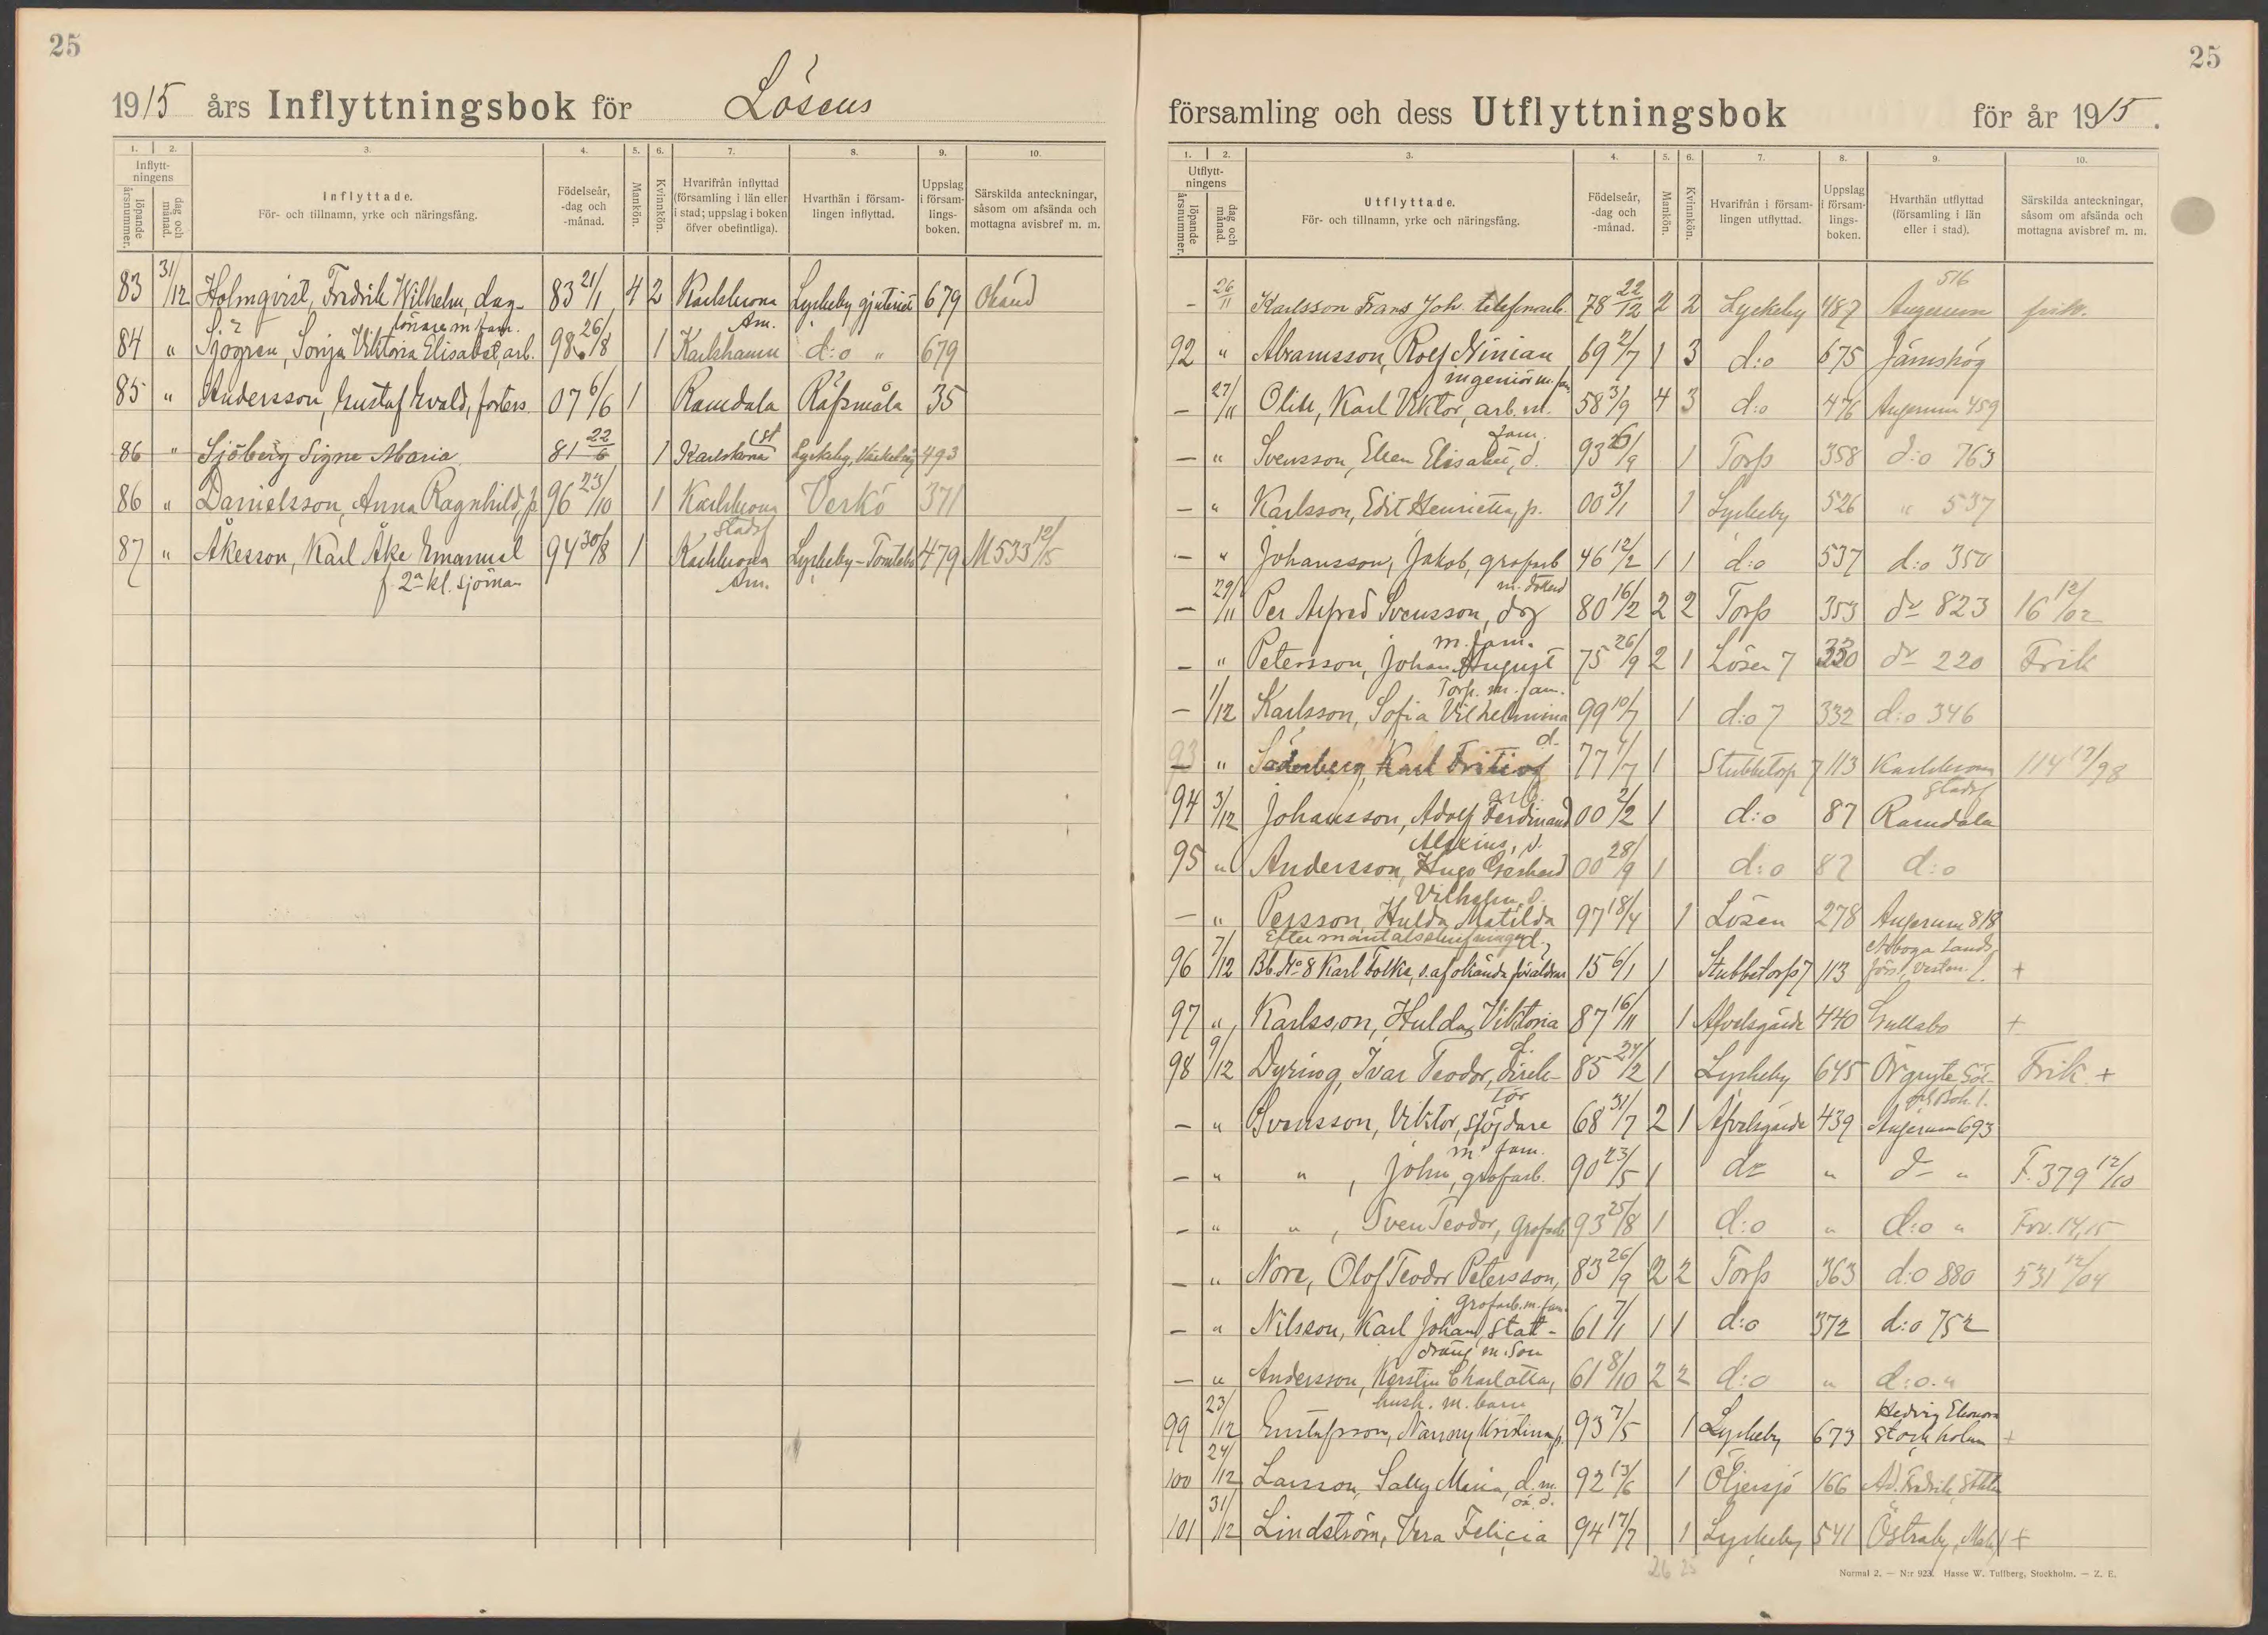 25
1915 års Inflyttningsbok för Lösens
1. 2. 3. 4. 5. 6. 7. 8. 9. 10.
Inflyttningens
löpande årsnummer.
dag och månad.
Inflyttade.
För- och tillnamn, yrke och näringsfång.
Födelseår, -dag och -månad.
Mankön.
Kvinnkön.
Hvarifrån inflyttad (församling i län eller i stad; uppslag i boken öfver obefintliga).
Hvarthän i församlingen inflyttad.
Uppslag i församlingsboken.
Särskilda anteckningar, såsom om afsända och mottagna avisbref m. m.
83 31/12 Holmqvist, Fredrik Wilhelm, dag- 83 21/1 4 2 Karlskrona Lyckeby gjuteriet 679
lönare m fam. Am.
84 " Sjögren, Sonja Viktoria Elisabet, arb. 98 26/8 1 Karlshamn d:o " 679
85 " Andersson, Gustaf Evald, fosters. 07 6/6 1 Ramdala Råfsmåla 35
86 " Sjöberg Signe Maria 81 22/6 1 Karlskrona Lyckeby, 493
86 " Danielsson, Anna Ragnhild, p 96 23/10 1 Karlskrona Verkö 371
stadsf
87 " Åkesson, Karl Åke Emanuel 94 30/8 1 Karlskrona Lyckeby-Tomtebo 479 M 533 12/15
f. 2a kl. sjöman Am.
25
församling och dess Utflyttningsbok för år 1915.
1. 2. 3. 4. 5. 6. 7. 8. 9. 10.
Utflyttningens
löpande årsnummer.
dag och månad.
Utflyttade.
För- och tillnamn, yrke och näringsfång.
Födelseår, -dag och -månad.
Mankön.
Kvinnkön.
Hvarifrån i församlingen utflyttad.
Uppslag i församlingsboken.
Hvarthän utflyttad (församling i län eller i stad).
Särskilda anteckningar, såsom om afsända och mottagna avisbref m. m.
516
- 26/11 Karlsson Frans Joh. telefonarb. 78 22/12 2 2 Lyckeby 487 Augerum frik.
92 " Abramsson, Rolf Ninian 69 2/7 1 3 d:o 675 Jämshög
ingeniör m. fam
- 27/11 Olin, Karl Viktor, arb. m. 58 3/9 4 3 d:o 476 Augerum 459
fam.
- " Svensson, Ellen Elisabet, d. 93 26/9 1 Torp 358 d:o 763
- " Karlsson, Edit Henrietta, p. 00 3/1 1 Lyckeby 526 " 537
- " Johansson, Jakob, grofarb 46 12/2 1 1 d:o 537 d:o 350
m. dotter
- 29/11 Per Alfred Svensson, 80 16/2 2 2 Torp 353 do 823 16 12/02
m. fam.
- " Petersson, Johan August 75 26/9 2 1 Lösen 7 330 do 220 Frik
Torp. m. fam.
- 1/12 Karlsson, Sofia Vilhelmina 99 10/7 1 d:o 7 332 d:o 346
d.
93 " Söderberg, Karl Fritiof 77 4/7 1 Stubbetorp 7 113 Karlskrona 114 12/98
arb. stadsf
94 3/12 Johansson, Adolf Ferdinand 00 2/2 1 d:o 87 Ramdala
95 " Andersson, Hugo Gerhard 00 28/9 1 d:o 87 d:o
Vilhelm, d.
- " Persson, Hulda Matilda 97 18/4 1 Lösen 278 Augerum 818
Efter mantalsskrifningen d.,
96 7/12 Bb. No 8 Karl Folke, s. af okända föräldrar 15 6/1 1 Stubbetorp 7 113 Arboga Lands förs., Vestm. l. +
97 " Karlsson, Hulda Viktoria 87 16/11 1 Afvelsgärde 440 Gullabo +
d.
98 9/12 Dyring, Ivar Teodor, direk- 85 24/2 1 Lyckeby 645 Örgryte, Frik +
tör
- " Svensson, Viktor, slöjdare 68 31/7 2 1 Afvelsgärde 439 Augerum 693
m fam.
- " ", John, grofarb. 90 23/5 1 do " do " F. 379 12/10
- " ", Sven Teodor, Grofarb 93 25/8 1 d:o " d:o " Frv. 14, 15
- " Nore, Olof Teodor Petersson, 83 26/9 2 2 Torp 363 d:o 880 531 12/04
Grofarb. m. fam.
- " Nilsson, Karl Johan, Stat- 61 7/1 1 1 d:o 372 d:o 752
dräng m. Son
- " Andersson, Kerstin Charlotta, 61 8/10 2 2 d:o " d:o "
hush. m. barn
99 23/12 Gustafsson, Nanny Kristina p. 93 7/5 1 Lyckeby 673 Hedvig Eleonora Stockholm +
100 24/12 Larsson, Sally Maria, d. m. 92 13/6 1 Öljersjö 166 Ad. Fredrik, Sthlm
oä. d.
101 31/12 Lindström, Vera Felicia 94 17/7 1 Lyckeby 541 Östraby, +
26 25
Normal 2. — N:r 923. Hasse W. Tullberg, Stockholm. — Z. E.